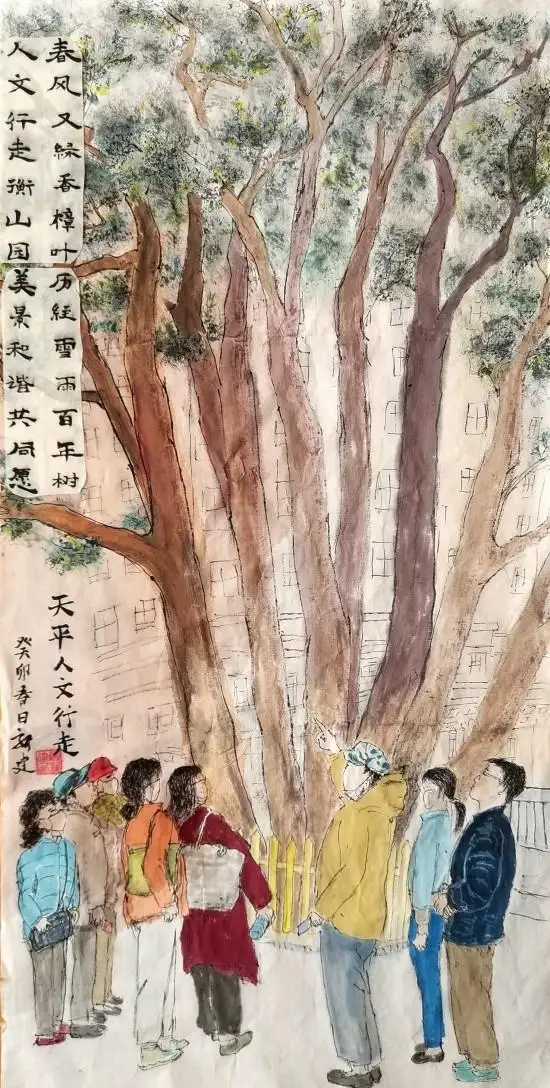 春风又绿香樟叶历经雪雨百年树
人文行走衡山园美景和谐共同愿
天平人文行走
癸卯春日